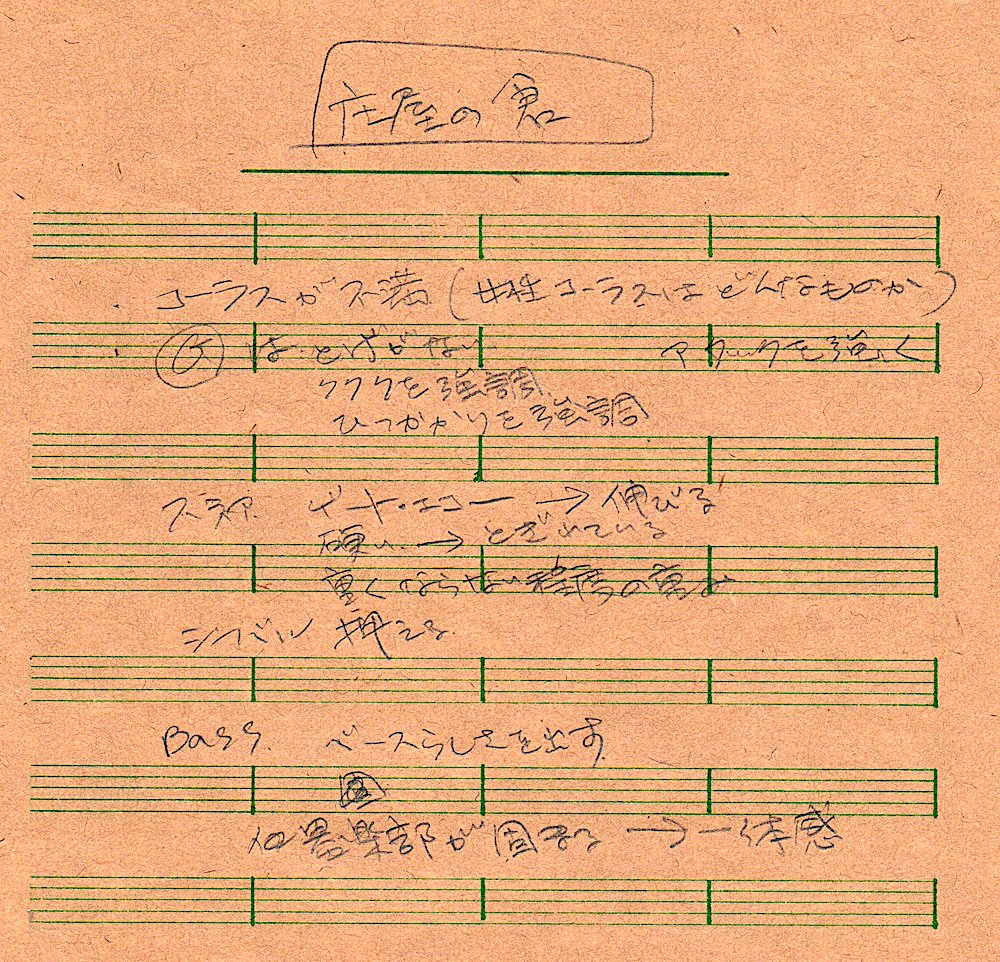 庄屋の倉
コーラスが不満(女性コーラスはどんなものか)
G. は とげがない アタックを強く
クククを強調
ひっかかりを強調
スネア ゲートエコー → 伸びる
硬い → とぎれている
重くならない程度の重み
シンバル 押える
Bass. ベースらしさを出す
器楽部が固まる → 一体感